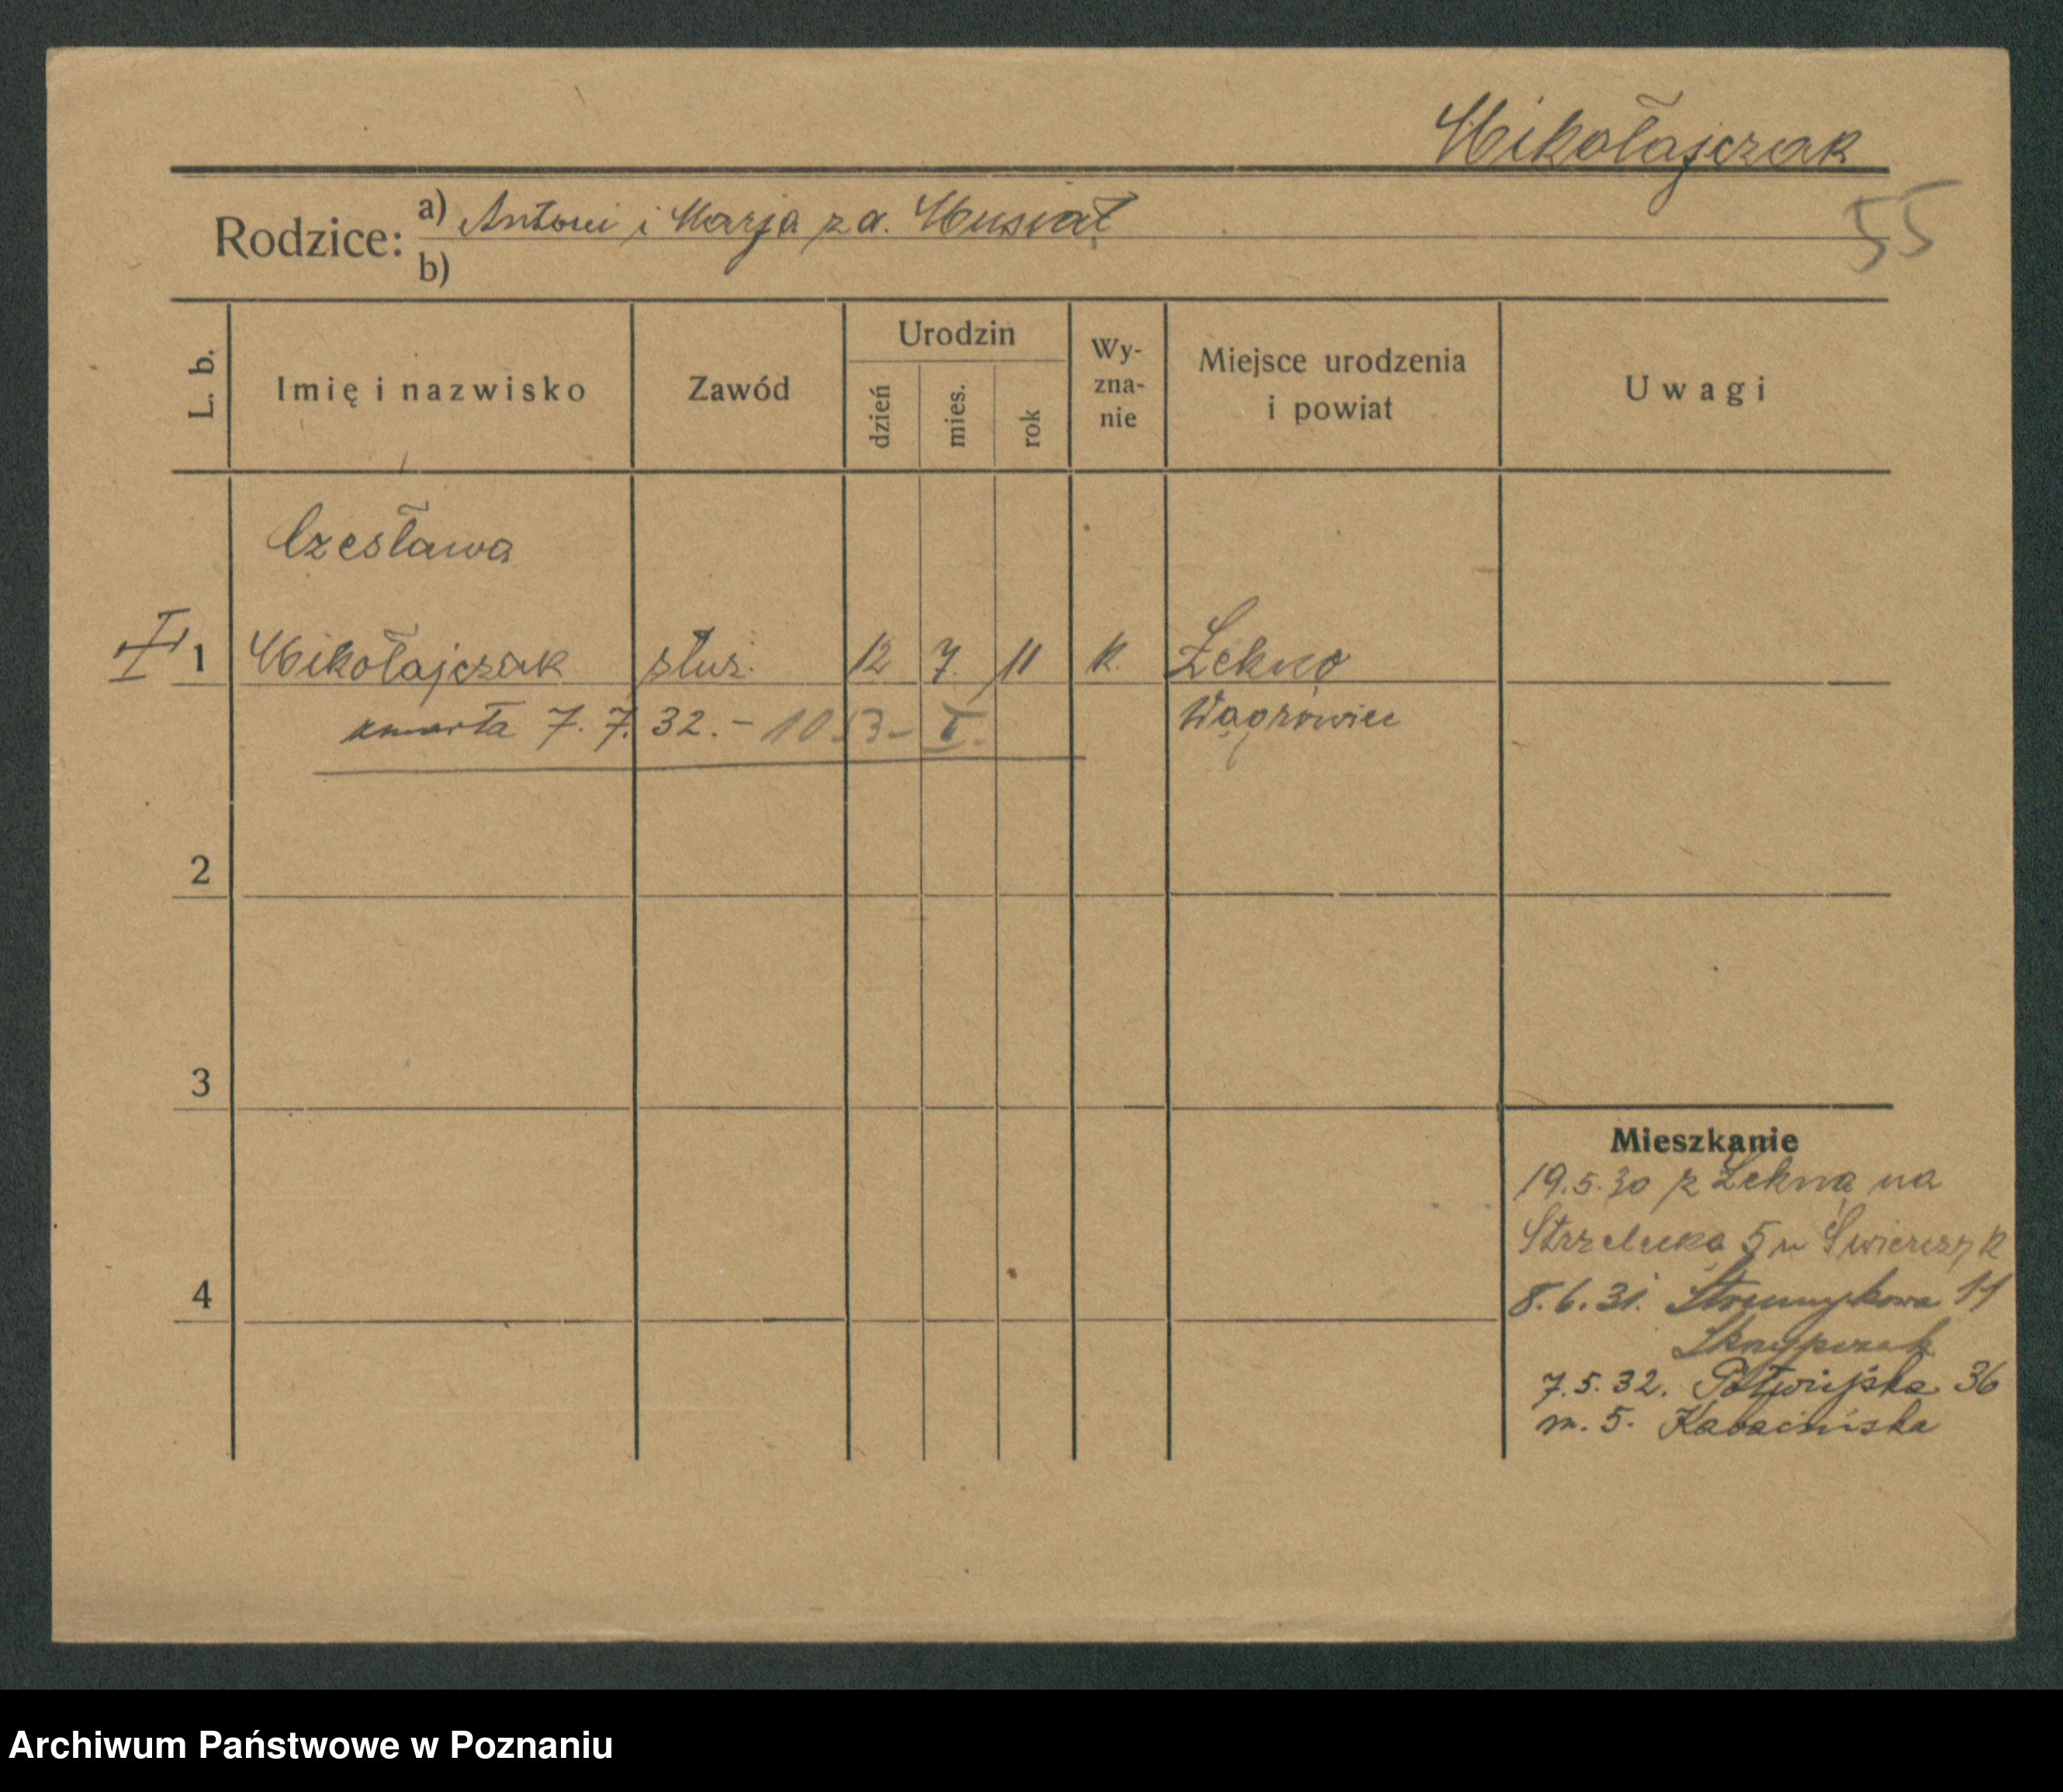 Mikołajczak
55
Rodzice: a) Antoni i Marja z d. Musiał
b)
L. b. Imię i nazwisko Zawód Urodzin dzień mies. rok Wy-zna-nie Miejsce urodzenia i powiat Uwagi
Czesława
1 Mikołajczak służ. 12 7. 11 k. Łekno
zmarła 7. 7. 32. – Wągrowiec
2
3
Mieszkanie
19.5.30 z Łekna na
Strzelecka 5 u Świerczyk
4
8.6.31. Strumykowa 11
Skrzypczak
7.5.32. Półwiejska 36
m. 5. Kabacińska
Archiwum Państwowe w Poznaniu